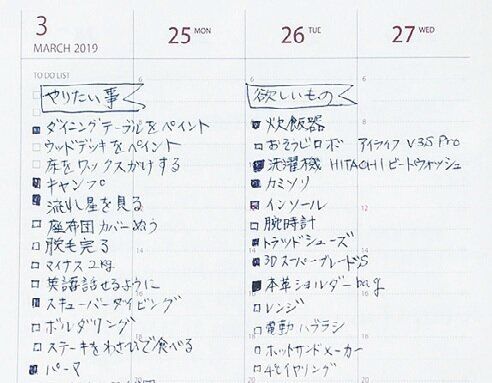 3
MARCH 2019
25 MON
26 TUE
27 WED
TO DO LIST
やりたい事
ダイニングテーブルをペイント
ウッドデッキをペイント
床をワックスかけする
キャンプ
流れ星を見る
座布団カバーぬう
脱毛完了
マイナス2kg
英語話せるように
スキューバーダイビング
ボルダリング
ステーキをわさびで食べる
パーマ
6
8
14
16
18
欲しいもの
炊飯器
おそうじロボ アイライフ V3S Pro
洗濯機 HITACHIビートウォッシュ
カミソリ
インソール
腕時計
トラッドシューズ
3Dスーパーブレードs
本革ショルダーbag
レンジ
電動ハブラシ
ホットサンドメーカー
6
12
14